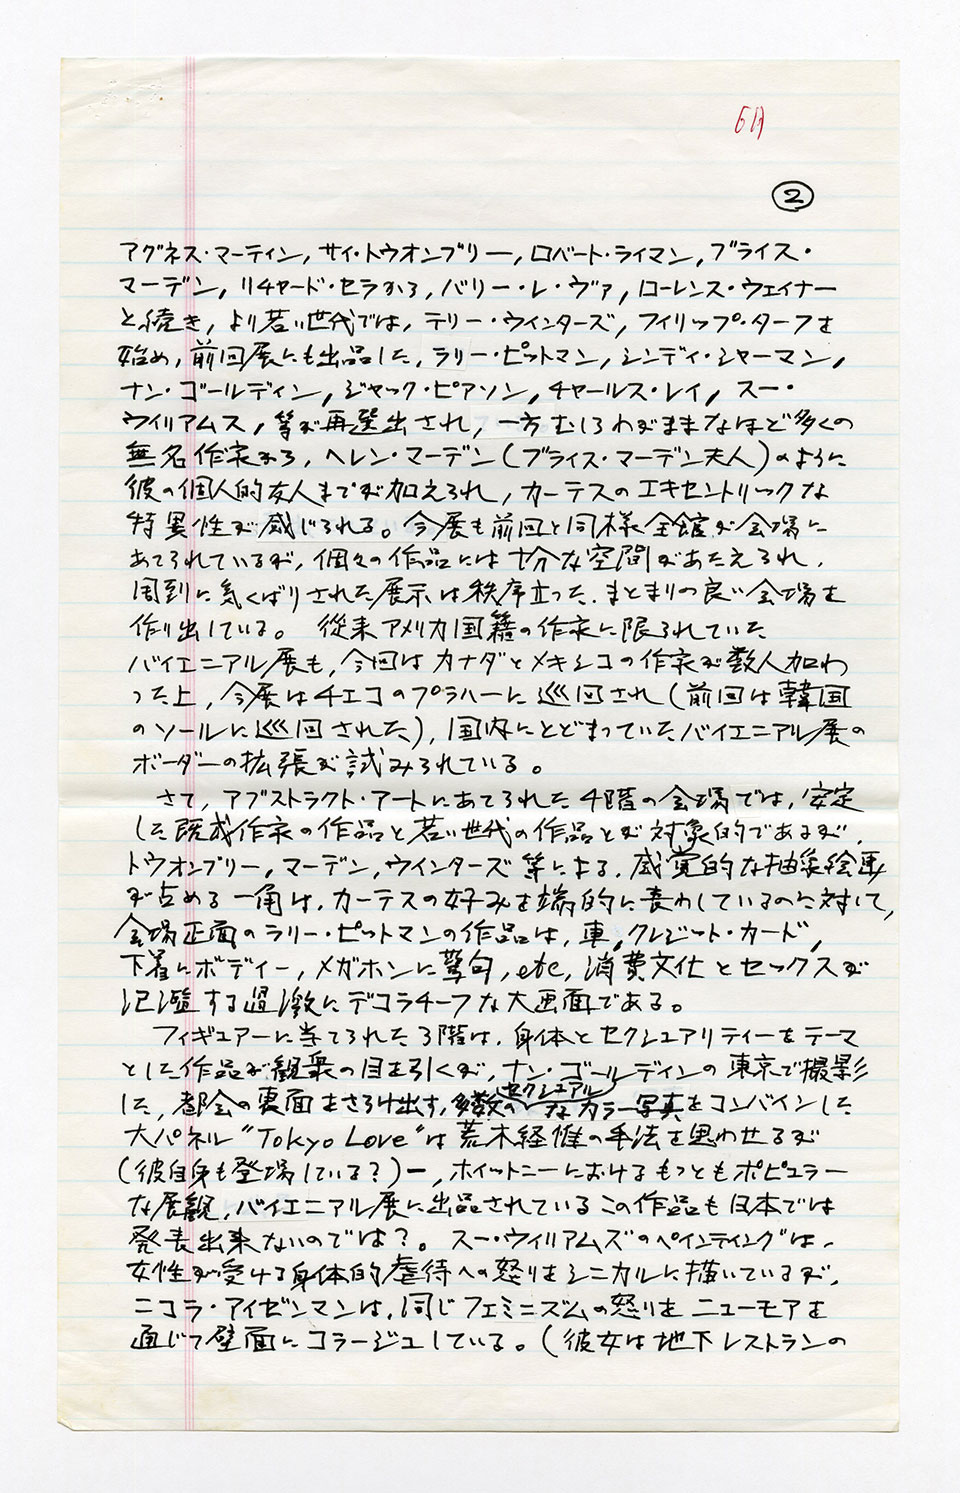 6月
2
アグネス・マーティン, サイ・トウオンブリー, ロバート・ライマン, ブライス・
マーデン, リチャード・セラから, バリー・レ・ヴァ, ローレンス・ウェイナー
と続き, より若い世代では, テリー・ウインターズ, フィリップ・ターフを
始め, 前回展にも出品した, ラリー・ピットマン, シンディ・シャーマン,
ナン・ゴールディン, ジャック・ピアソン, チャールス・レイ, スー・
ウイリアムス, 等が再選出され, 一方むしろわがままなほど多くの
無名作家から, ヘレン・マーデン(ブライス・マーデン夫人)のように
彼の個人的友人までが加えられ, カーテスのエキセントリックな
特異性が感じられる。今展も前回と同様全館が会場に
あてられているが, 個々の作品には十分な空間があたえられ,
周到に気くばりされた展示は秩序立った, まとまりの良い会場を
作り出している。 従来アメリカ国籍の作家に限られていた
バイエニアル展も, 今回はカナダとメキシコの作家が数人加わ
った上, 今展はチエコのプラハーに巡回され(前回は韓国
のソールに巡回された), 国内にとどまっていたバイエニアル展の
ボーダーの拡張が試みられている。
さて, アブストラクト・アートにあてられた4階の会場では, 安定
した既成作家の作品と若い世代の作品とが対象的であるが,
トウオンブリー, マーデン, ウインターズ等による, 感覚的な抽象絵画
が占める一角は, カーテスの好みを端的に表わしているのに対して,
会場正面のラリー・ピットマンの作品は, 車, クレジット・カード,
下着にボディー, メガホンに警句, etc, 消費文化とセックスが
氾濫する過激にデコラチーフな大画面である。
フィギュアーに当てられた3階は, 身体とセクシュアリティーをテーマ
とした作品が観衆の目を引くが, ナン・ゴールディンの東京で撮影
した, 都会の裏面をさらけ出す, 多数のセクシュアルなカラー写真をコンバインした
大パネル"Tokyo Love"は荒木経惟の手法を思わせるが
(彼自身も登場している?)ー, ホイットニーにおけるもっともポピュラー
な展観, バイエニアル展に出品されているこの作品も日本では
発表出来ないのでは?。 スー・ウィリアムズのペインティングは,
女性が受ける身体的虐待への怒りをシニカルに描いているが,
ニコラ・アイゼンマンは, 同じフェミニズムの怒りをニューモアを
通じて壁面にコラージュしている。(彼女は地下レストランの